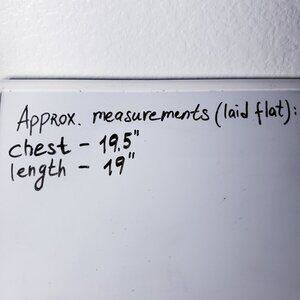 Approx. measurements (laid flat):
chest - 19.5"
length - 19"